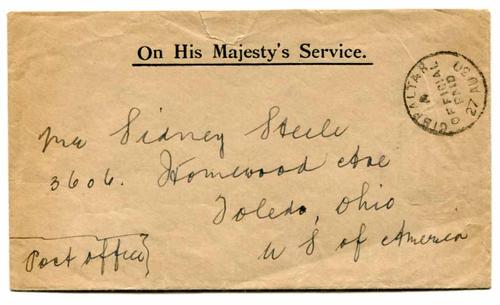 On His Majesty's Service.
GIBRALTAR
OFFICIAL
PAID
27 AU 20
Mr Sidney Steele
3606. Homewood Ave
Toledo, Ohio
U S of America
Post office